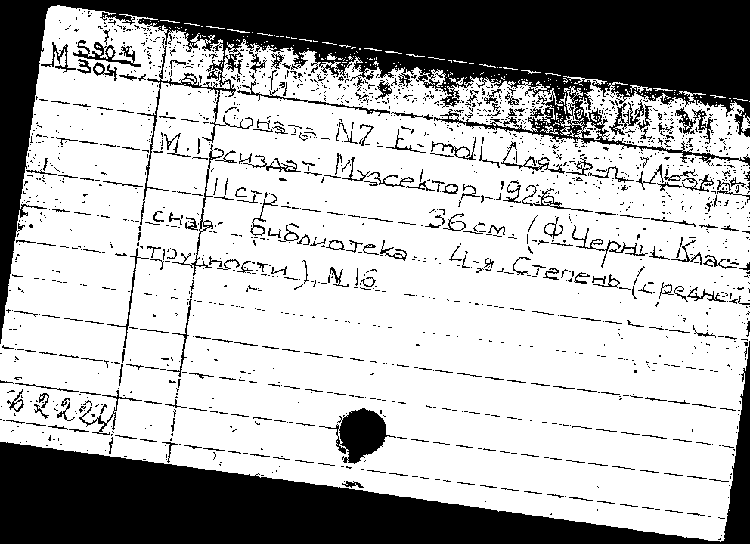 М 590-4
304
Гайдн, И
Соната N7. E-moll Для ф-п. (Леберт
М. Госиздат, Музсектор, 1926
11 стр. 36 см. (Ф. Черни. Клас-
сная библиотека. 4-я. Степень (средней
трудности), N 16